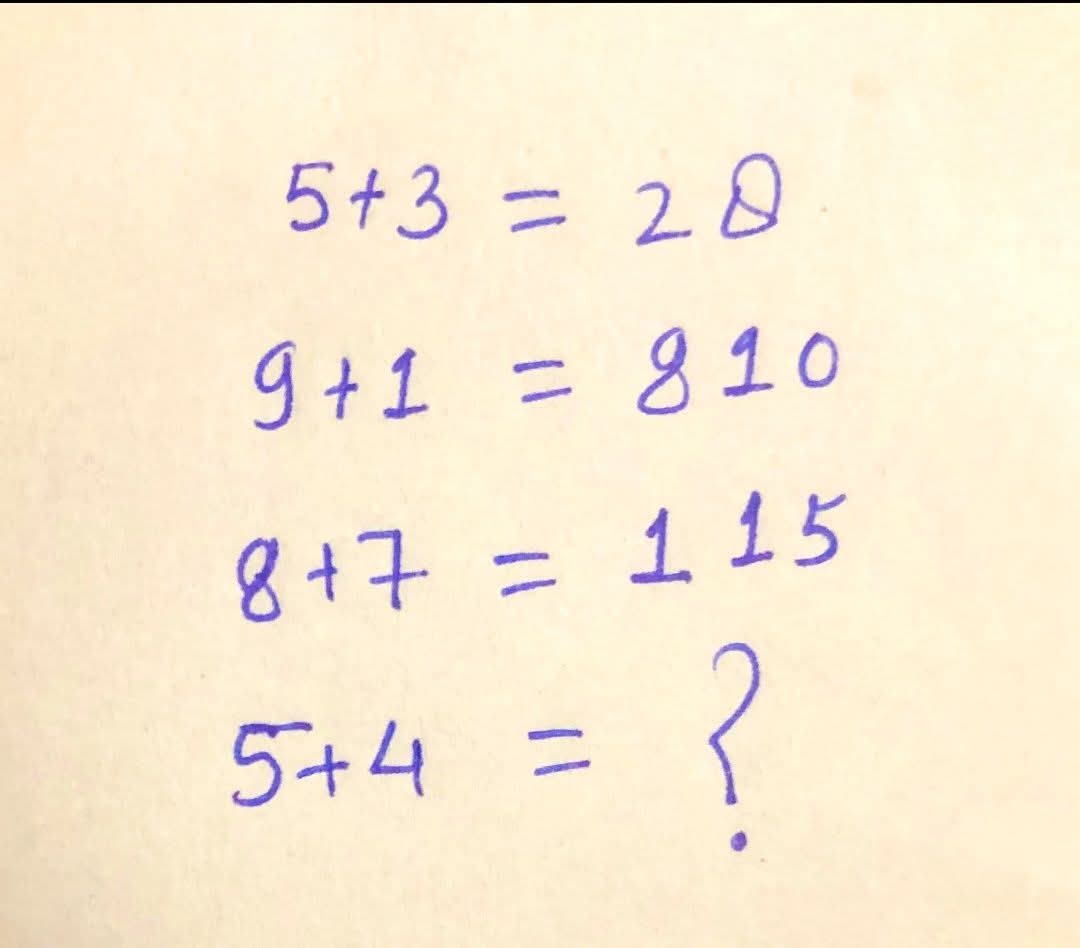 5+3 = 28
9+1 = 810
8+7 = 115
5+4 = ?